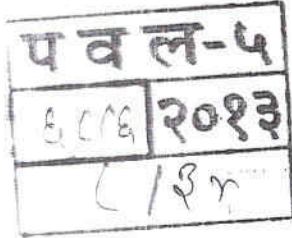 प व ल-५
६८८६ २०१३
८/३४